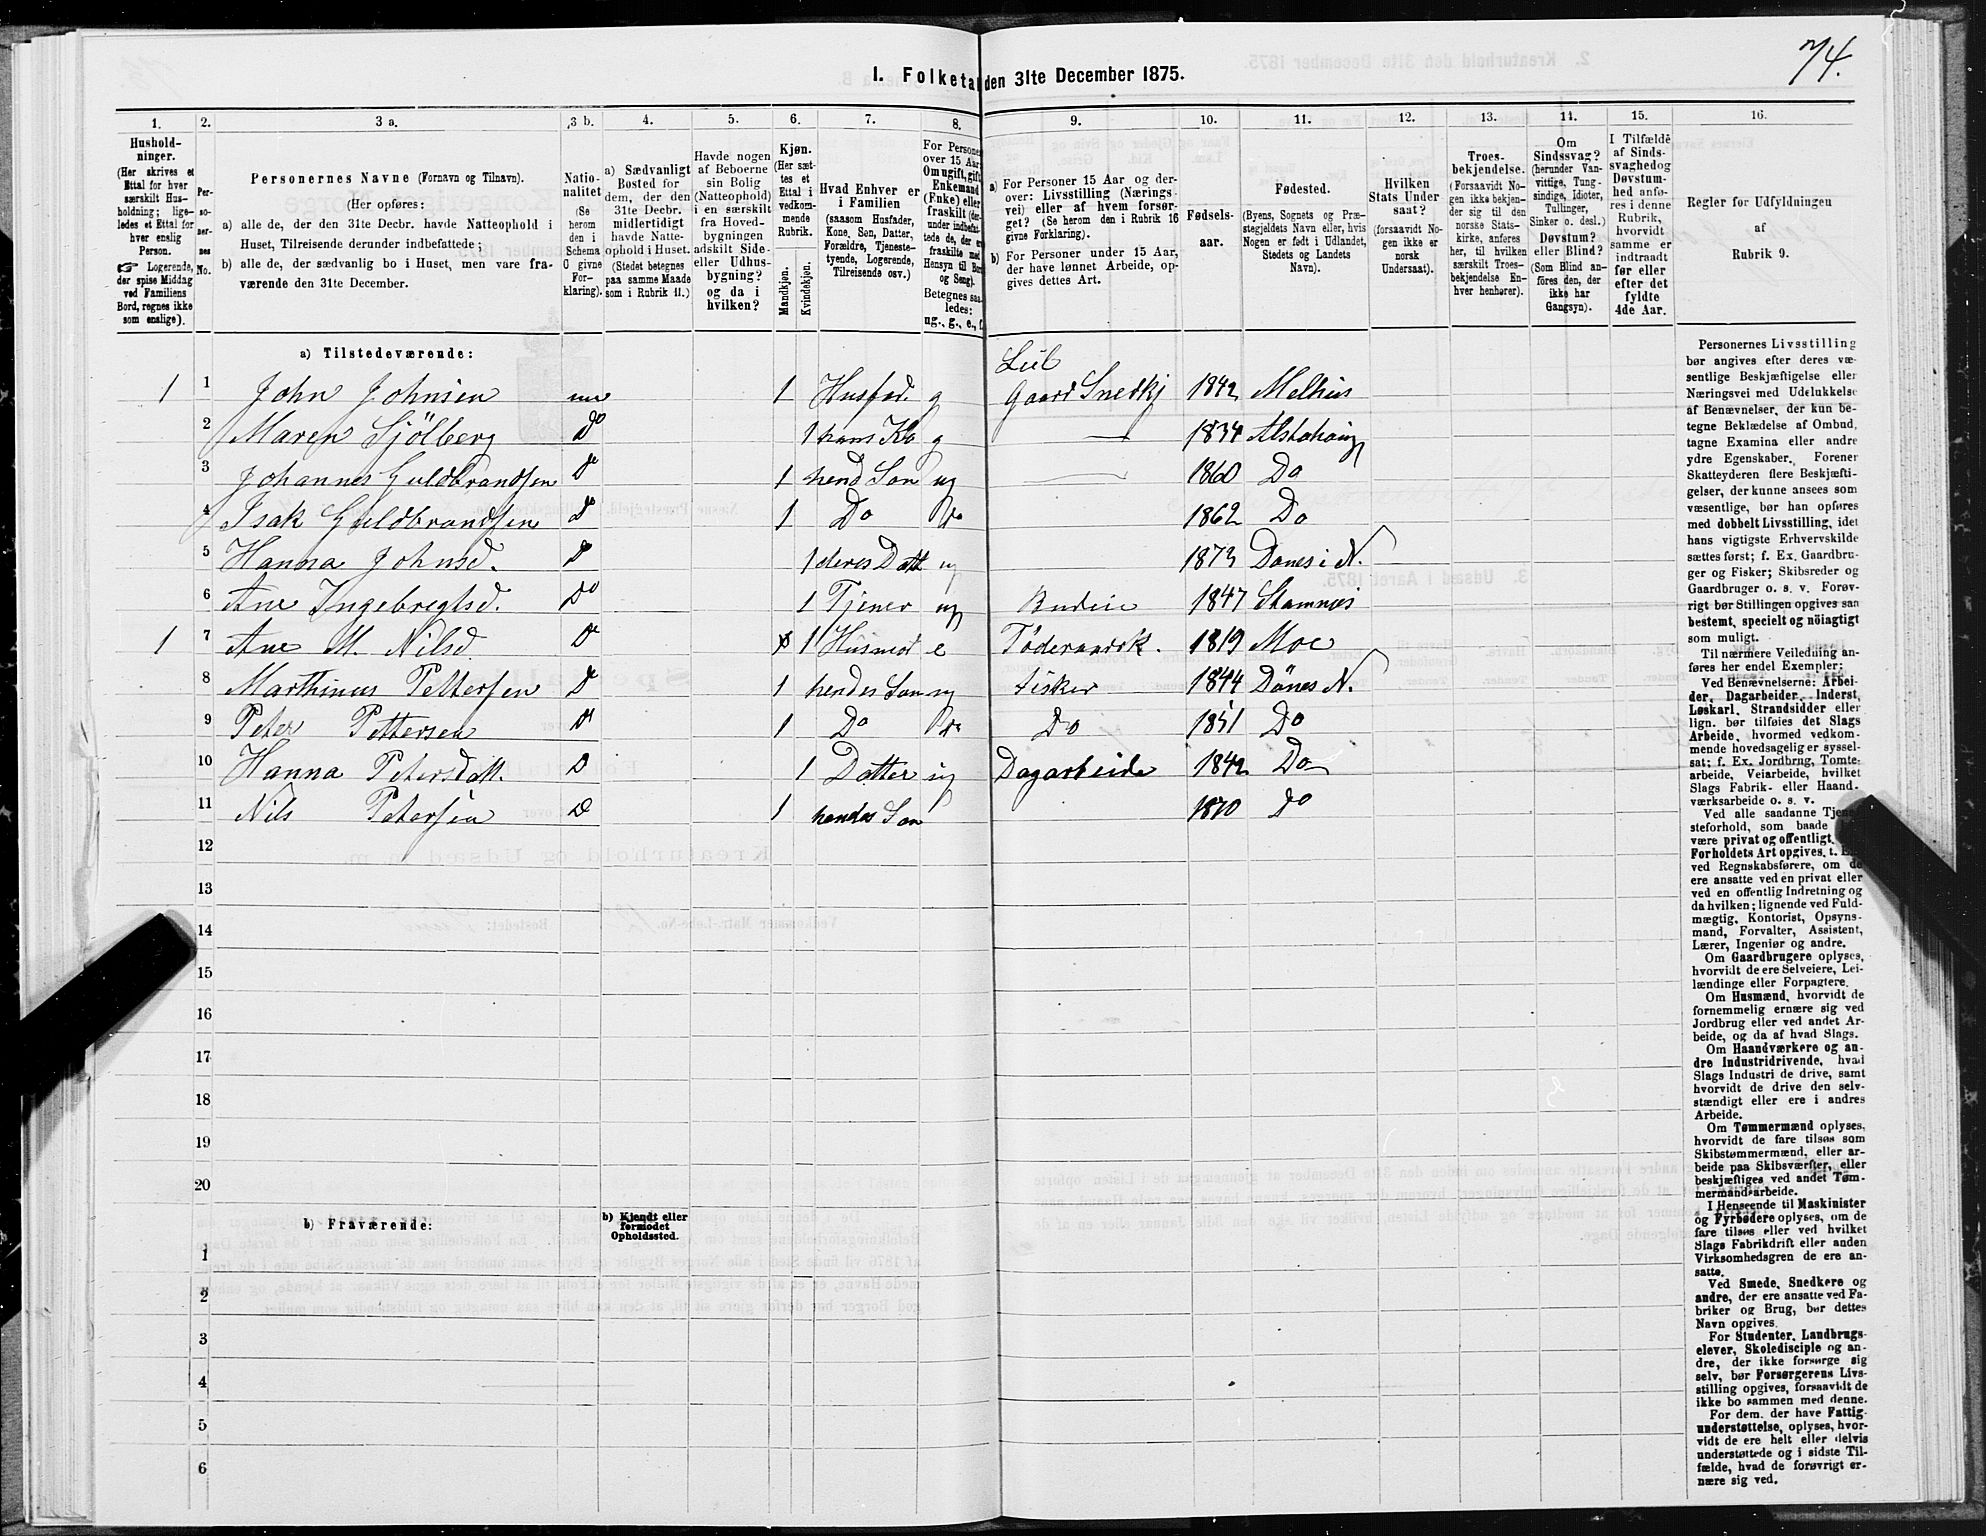 74.
I. Folketa den 31te December 1875.
1. 2. 3 a. 3 b. 4. 5. 6. 7. 8. 9. 10. 11. 12. 13. 14. 15. 16.
Hushold-
ninger.
(Her skrives et
Ettal for hver
særskilt Hus-
holdning; lige-
ledes et Ettal for
hver enslig
Person.
☞ Logerende,
der spise Middag
ved Familiens
Bord, regnes ikke
som enslige).
Per-
so-
ner-
nes
No.
Personernes Navne (Fornavn og Tilnavn).
(Her opføres:
a) alle de, der den 31te Decbr. havde Natteophold i
Huset, Tilreisende derunder indbefattede;
b) alle de, der sædvanlig bo i Huset, men vare fra-
værende den 31te December.
Natio-
nalitet
(Se
herom
den i
Schema
C givne
For-
klaring).
a) Sædvanligt
Bosted for
dem, der den
31te Decbr.
midlertidigt
havde Natte-
ophold i Huset.
(Stedet betegnes
paa samme Maade
som i Rubrik 11.)
Havde nogen
af Beboerne
sin Bolig
(Natteophold)
i en særskilt
fra Hoved-
bygningen
adskilt Side-
eller Udhus-
bygning?
og da i
hvilken?
Kjøn.
(Her sæt-
tes et
Ettal i
vedkom-
mende
Rubrik.
Mandkjøn.
Kvindekjøn.
Hvad Enhver er
i Familien
(saasom Husfader,
Kone, Søn, Datter,
Forældre, Tjeneste-
tyende, Logerende,
Tilreisende osv.)
For Persone
over 15 Aar:
Om ugift, gift,
Enkemand
(Enke) eller
fraskilt (der-
under indbefat-
tede de, der er
fraskilte med
Hensyn til Bord
og Seng).
Betegnes saa-
ledes:
ug., g., e., f.
a) For Personer 15 Aar og der-
over: Livsstilling (Nærings-
vei) eller af hvem forsør-
get? (Se herom den i Rubrik 16
givne Forklaring).
b) For Personer under 15 Aar,
der have lønnet Arbeide, op-
gives dettes Art.
Fødsels-
aar.
Fødested.
(Byens, Sognets og Præ-
stegjeldets Navn eller, hvis
Nogen er født i Udlandet,
Stedets og Landets
Navn).
Hvilken
Stats Under
saat?
(forsaavidt No-
gen ikke er
norsk
Undersaat).
Troes-
bekjendelse.
(Forsaavidt No-
gen ikke bekjen-
der sig til den
norske Stats-
kirke, anføres
her, til hvilken
særskilt Troes-
bekjendelse En-
hver henhører).
Om
Sindssvag?
(herunder Van-
vittige, Tung-
sindige, Idioter,
Tullinger,
Sinker o. desl.)
Døvstum?
eller Blind?
(Som Blind an-
føres den, der
ikke har
Gangsyn).
I Tilfælde
af Sinds-
svaghed og
Døvstum-
hed anfø-
res i denne
Rubrik,
hvorvidt
samme er
indtraadt
før eller
efter det
fyldte
4de Aar.
Regler for Udfyldningen
af
Rubrik 9.
a) Tilstedeværende:
1 1 John Johnsen 1 Husfad. g Gaard Snedkj 1842 Melhus
2 Maren Sjölberg Do 1 hans Ko g — 1834 Alstahaug
3 Johannes Guldbrandsen Do 1 hend Søn ug — 1860 Do
4 Isak Guldbrandsen D 1 Do Do 1862 Do
5 Hanna Johnsd. D 1 deres Datt ug 1873 Dønes i N.
6 Ane Ingebregtsd. Do 1 Tjener ug Budeie 1847 Stamnes
1 7 Ane M. Nilsd Do 1 Husmod e Føderaadsk. 1819 Moe
8 Marthinus Pettersen D 1 hendes Søn ug Fisker 1844 Dönes N.
9 Peter Pettersen D 1 Do Do Do 1851 Do
10 Hanna Petersdatt. D 1 Datter ug Dagarbeide 1842 Do
11 Nils Petersen D 1 hendes Søn 1870 Do
12
13
14
15
16
17
18
19
20
b) Fraværende:
b) Kjendt eller
formodet
Opholdssted.
1
2
3
4
5
6
Personernes Livsstilling
bør angives efter deres væ-
sentlige Beskjæftigelse eller
Næringsvei med Udelukkelse
af Benævnelser, der kun be-
tegne Beklædelse af Ombud,
tagne Examina eller andre
ydre Egenskaber. Forener
Skatteyderen flere Beskjæfti-
gelser, der kunne ansees som
væsentlige, bør han opføres
med dobbelt Livsstilling, idet
hans vigtigste Erhvervskilde
sættes først; f. Ex. Gaardbru-
ger og Fisker; Skibsreder og
Gaardbruger o. s. v. Forøv-
rigt bør Stillingen opgives saa
bestemt, specielt og nöiagtigt
som muligt.
Til nærmere Veiledning an-
føres her endel Exempler:
Ved Benævnelserne: Arbei-
der, Dagarbeider, Inderst,
Løskarl, Strandsidder eller
lign. bør tilføies det Slags
Arbeide, hvormed vedkom-
mende hovedsagelig er syssel-
sat; f. Ex. Jordbrug, Tomte-
arbeide, Veiarbeide, hvilket
Slags Fabrik- eller Haand-
værksarbeide o. s. v.
Ved alle saadanne Tjene
steforhold, som baade
være privat og offentligt,
Forholdets Art opgives, t. Ex
ved Regnskabsførere, om de
ere ansatte ved en privat eller
ved en offentlig Indretning og
da hvilken; lignende ved Fuld-
mægtig, Kontorist, Opsyns-
mand, Forvalter, Assistent,
Lærer, Ingeniør og andre.
Om Gaardbrugere oplyses,
hvorvidt de ere Selveiere, Lei-
lændinge eller Forpagtere.
Om Husmænd, hvorvidt de
fornemmelig ernære sig ved
Jordbrug eller ved andet Ar-
beide, og da af hvad Slags.
Om Haandværkere og an-
dre Industridrivende, hvad
Slags Industri de drive, samt
hvorvidt de drive den selv-
stændigt eller ere i andres
Arbeide.
Om Tømmermænd oplyses,
hvorvidt de fare tilsøs som
Skibstømmermænd, eller ar-
beide paa Skibsværfter, eller
beskjæftiges ved andet Tøm-
mermandsarbeide.
I Henseende til Maskinister
og Fyrbødere oplyses, om de
fare tilsøs eller ved hvilket
Slags Fabrikdrift eller anden
Virksomhedsgren de ere an-
satte.
Ved Smede, Snedkere og
andre, der ere ansatte ved Fa-
briker og Brug, bør dettes
Navn opgives.
For Studenter, Landbrugs-
elever, Skoledisciple og an-
dre, der ikke forsørge sig
selv, bør Forsørgerens Livs-
stilling opgives, forsaavidt de
ikke bo sammen med denne.
For dem, der have Fattig-
understøttelse, oplyses, hvor-
vidt de ere helt eller delvis
understøttede og i sidste Til-
fælde, hvad de forøvrigt er-
nære sig ved.